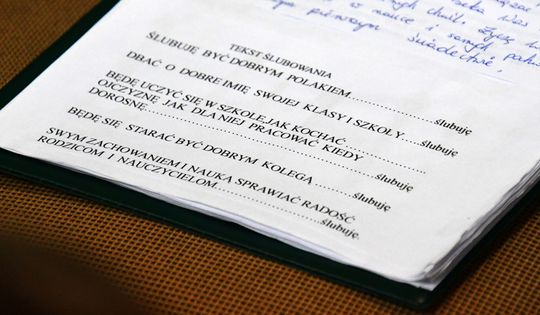 chwil, życzę
w nauce i samych
świadectwie,
TEKST ŚLUBOWANIA
ŚLUBUJĘ BYĆ DOBRYM POLAKIEM....................ślubuję
DBAĆ O DOBRE IMIĘ SWOJEJ KLASY I SZKOŁY....ślubuję
BĘDĘ UCZYĆ SIĘ W SZKOLE,JAK KOCHAĆ
OJCZYZNĘ JAK DLA NIEJ PRACOWAĆ KIEDY
DOROSNĘ...............................................................ślubuję
BĘDĘ SIĘ STARAĆ BYĆ DOBRYM KOLEGĄ...........ślubuję
SWYM ZACHOWANIEM I NAUKĄ SPRAWIAĆ RADOŚĆ
RODZICOM I NAUCZYCIELOM...........................ślubuję.